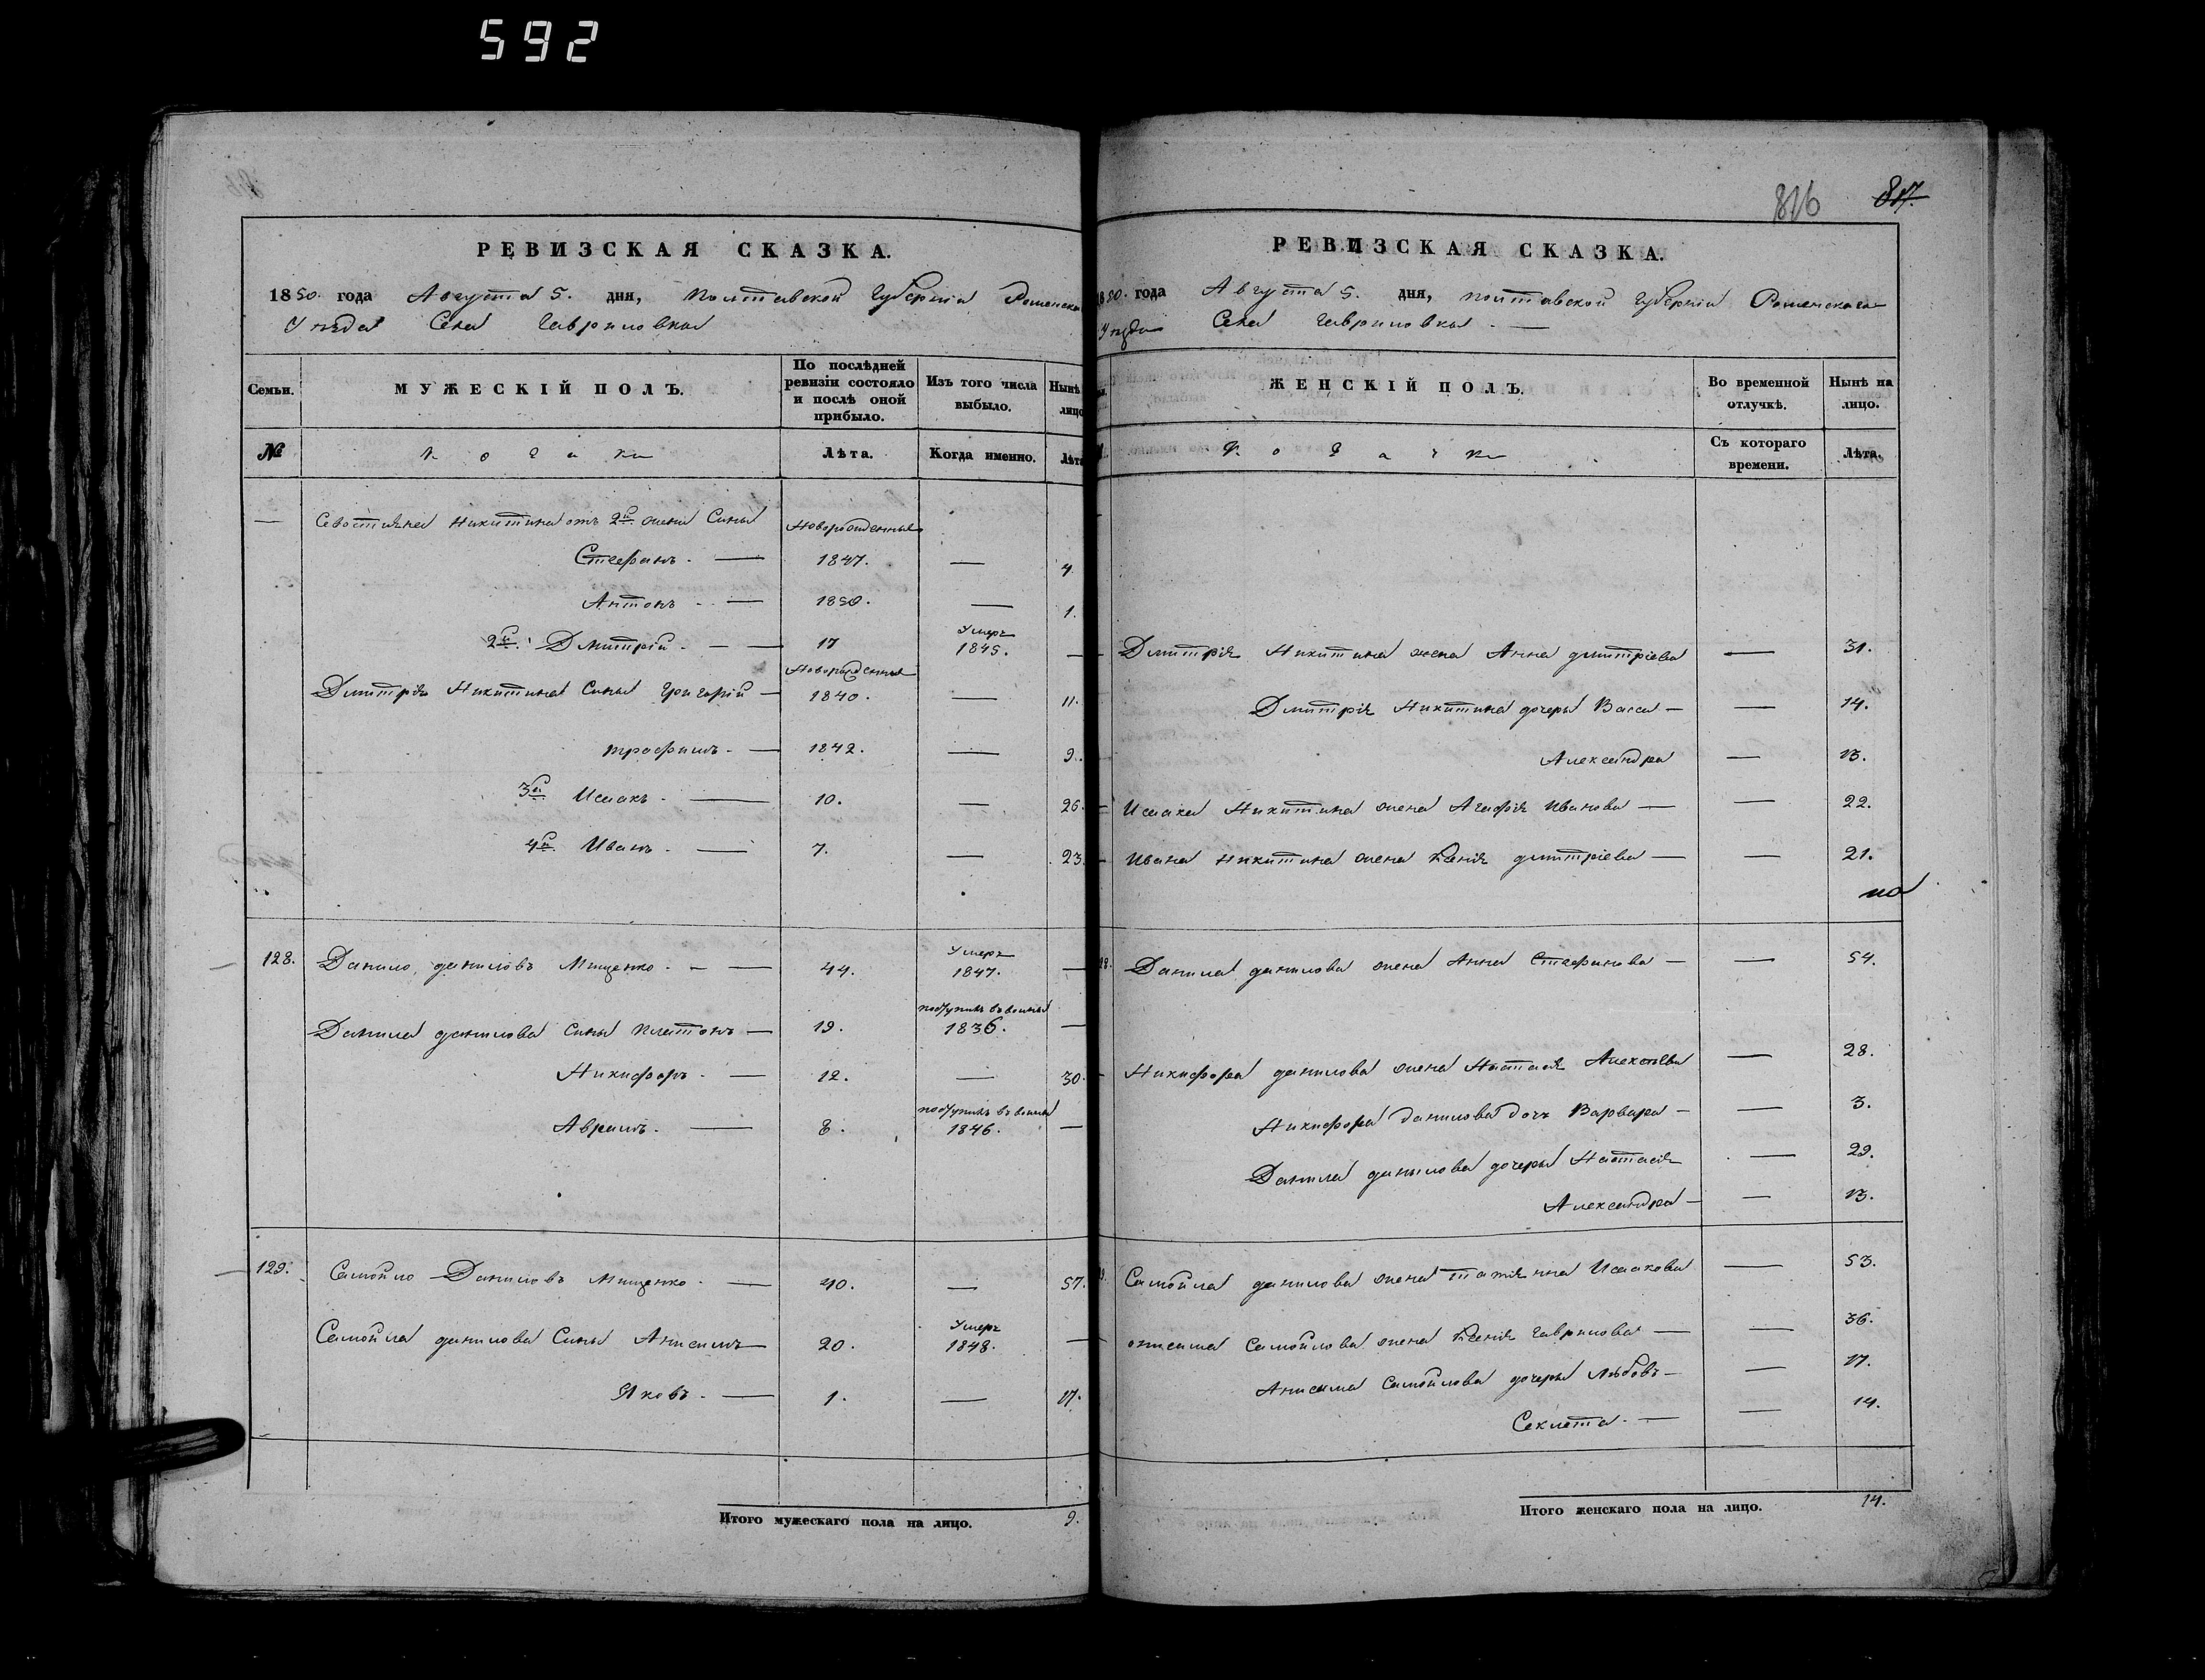 592
816 817.
РЕВИЗСКАЯ СКАЗКА.
1850. года Августа 5. дня, Полтавской Губерніи Роменска
Уѣзда Села Гавриловки
Семьи. МУЖЕСКІЙ ПОЛЪ. По послѣдней ревизіи состояло и послѣ оной прибыло. Изъ того числа выбыло. Нынѣ лицо
№ Козаки Лѣта. Когда именно. Лѣта
— Севостіяна Никитина отъ 2й жены Сины Новорожденные
Стефанъ. — 1847. — 4.
Антонъ — 1850. — 1.
2й Дмитрій — 17 Умеръ 1845. —
Дмитрія Никитина Сины Григорій — Новорожденные 1840. — 11.
трофимъ — 1842. — 9.
3й Исаакъ — 10. — 26.
4й Иванъ — 7. — 23.
128. Данило даниловъ Мищенко — 44. Умеръ 1847. —
Данила данилова Сины Платонъ — 19. поступилъ въ воины 1836. —
Никифоръ — 12. — 30.
Аврамъ — 8. поступилъ въ воины 1846. —
129. Самойло Даниловъ Мищенко — 40. — 57.
Самойла данилова Сины Анисимъ — 20. Умеръ 1848. —
Яковъ — 1. — 17.
Итого мужескаго пола на лицо. 9.
РЕВИЗСКАЯ СКАЗКА.
1850. года Августа 5. дня, полтавской Губерніи Роменскаго
Уѣзда Села Гавриловки. —
ЖЕНСКІЙ ПОЛЪ. Во временной отлучкѣ. Нынѣ на лицо.
Козачки Съ котораго времени. Лѣта.
Дмитрія Никитина жена Анна дмитріева — 31.
Дмитрія Никитина дочери Васса — — 14.
Александра — 13.
Исаака Никитина жена Агафія Иванова — — 22.
Ивана Никитина жена Ксенія дмитріева — — 21.
Данила данилова жена Анна Стефанова — — 54.
Никифора данилова жена Настасія Алексѣева — 28.
Никифора данилова дочь Варвара — — 3.
Данила данилова дочери Настасія — 29.
Александра — — 13.
Самойла данилова жена татіянна Исаакова — 53.
онисима Самойлова жена Ксенія гаврилова — — 36.
Анисима Самойлова дочери Любовь — — 17.
Секлета. — — 14.
Итого женскаго пола на лицо. 14.